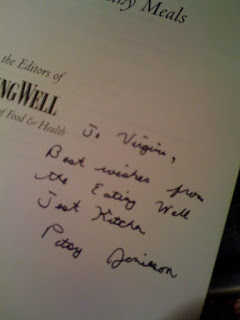 ny Meals
the Editors of
NGWELL
of Food & Health
To Virginia,
Best wishes from
the Eating Well
Test Kitchen
Patsy Jamieson